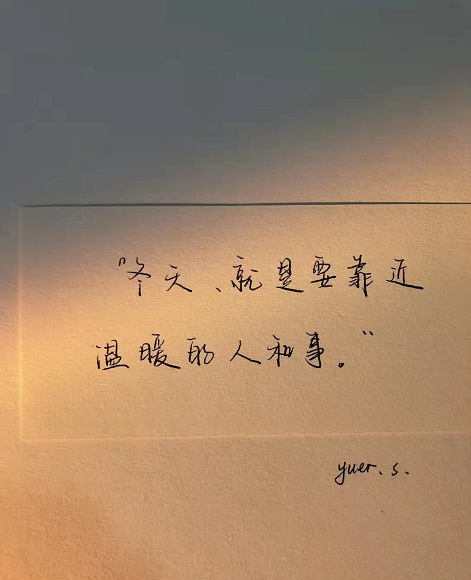 "冬天、就是要靠近
温暖的人和事。"
yuer.s.